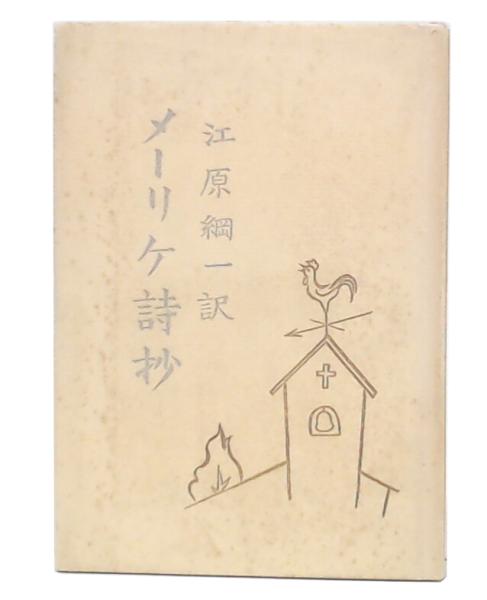 江原綱一訳
メーリケ詩抄